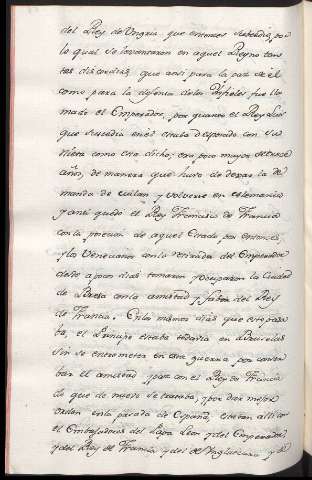 del Rey de Ungria que entonces sucedio, por
lo qual se levantaron en aquel Reyno tan
tas discordias, que ansi para la paz de el
como para la defensa de los Infieles fue lla
mado el Emperador, por quanto el Rey Luis
que sucedia en el estaba desposado con su
nieta como esta dicho, era poco mayor de
años, de manera que huvo de dexar la de
manda de Milan y volverse en Alemania
y ansi quedo el Rey Francisco de Francia
con la posesion de aquel Estado por entonces,
y los Venecianos con la del Emperador
desde a pocos dias tomaron y ocuparon la Ciudad
de con la amistad y favor del Rey
de Francia. En los mismos dias que esto pasa
ba, el Principe estaba todavia en Bruselas
sin se entrometer en esta guerra por conser
bar el amistad y paz con el Rey de Francia
lo que de nuevo se trataba, y por dar mejor
orden en la pasada de España, estaban alli
el Embajadores del Papa Leon y del Emperador,
y del Rey de Francia y del de Inglaterra y de